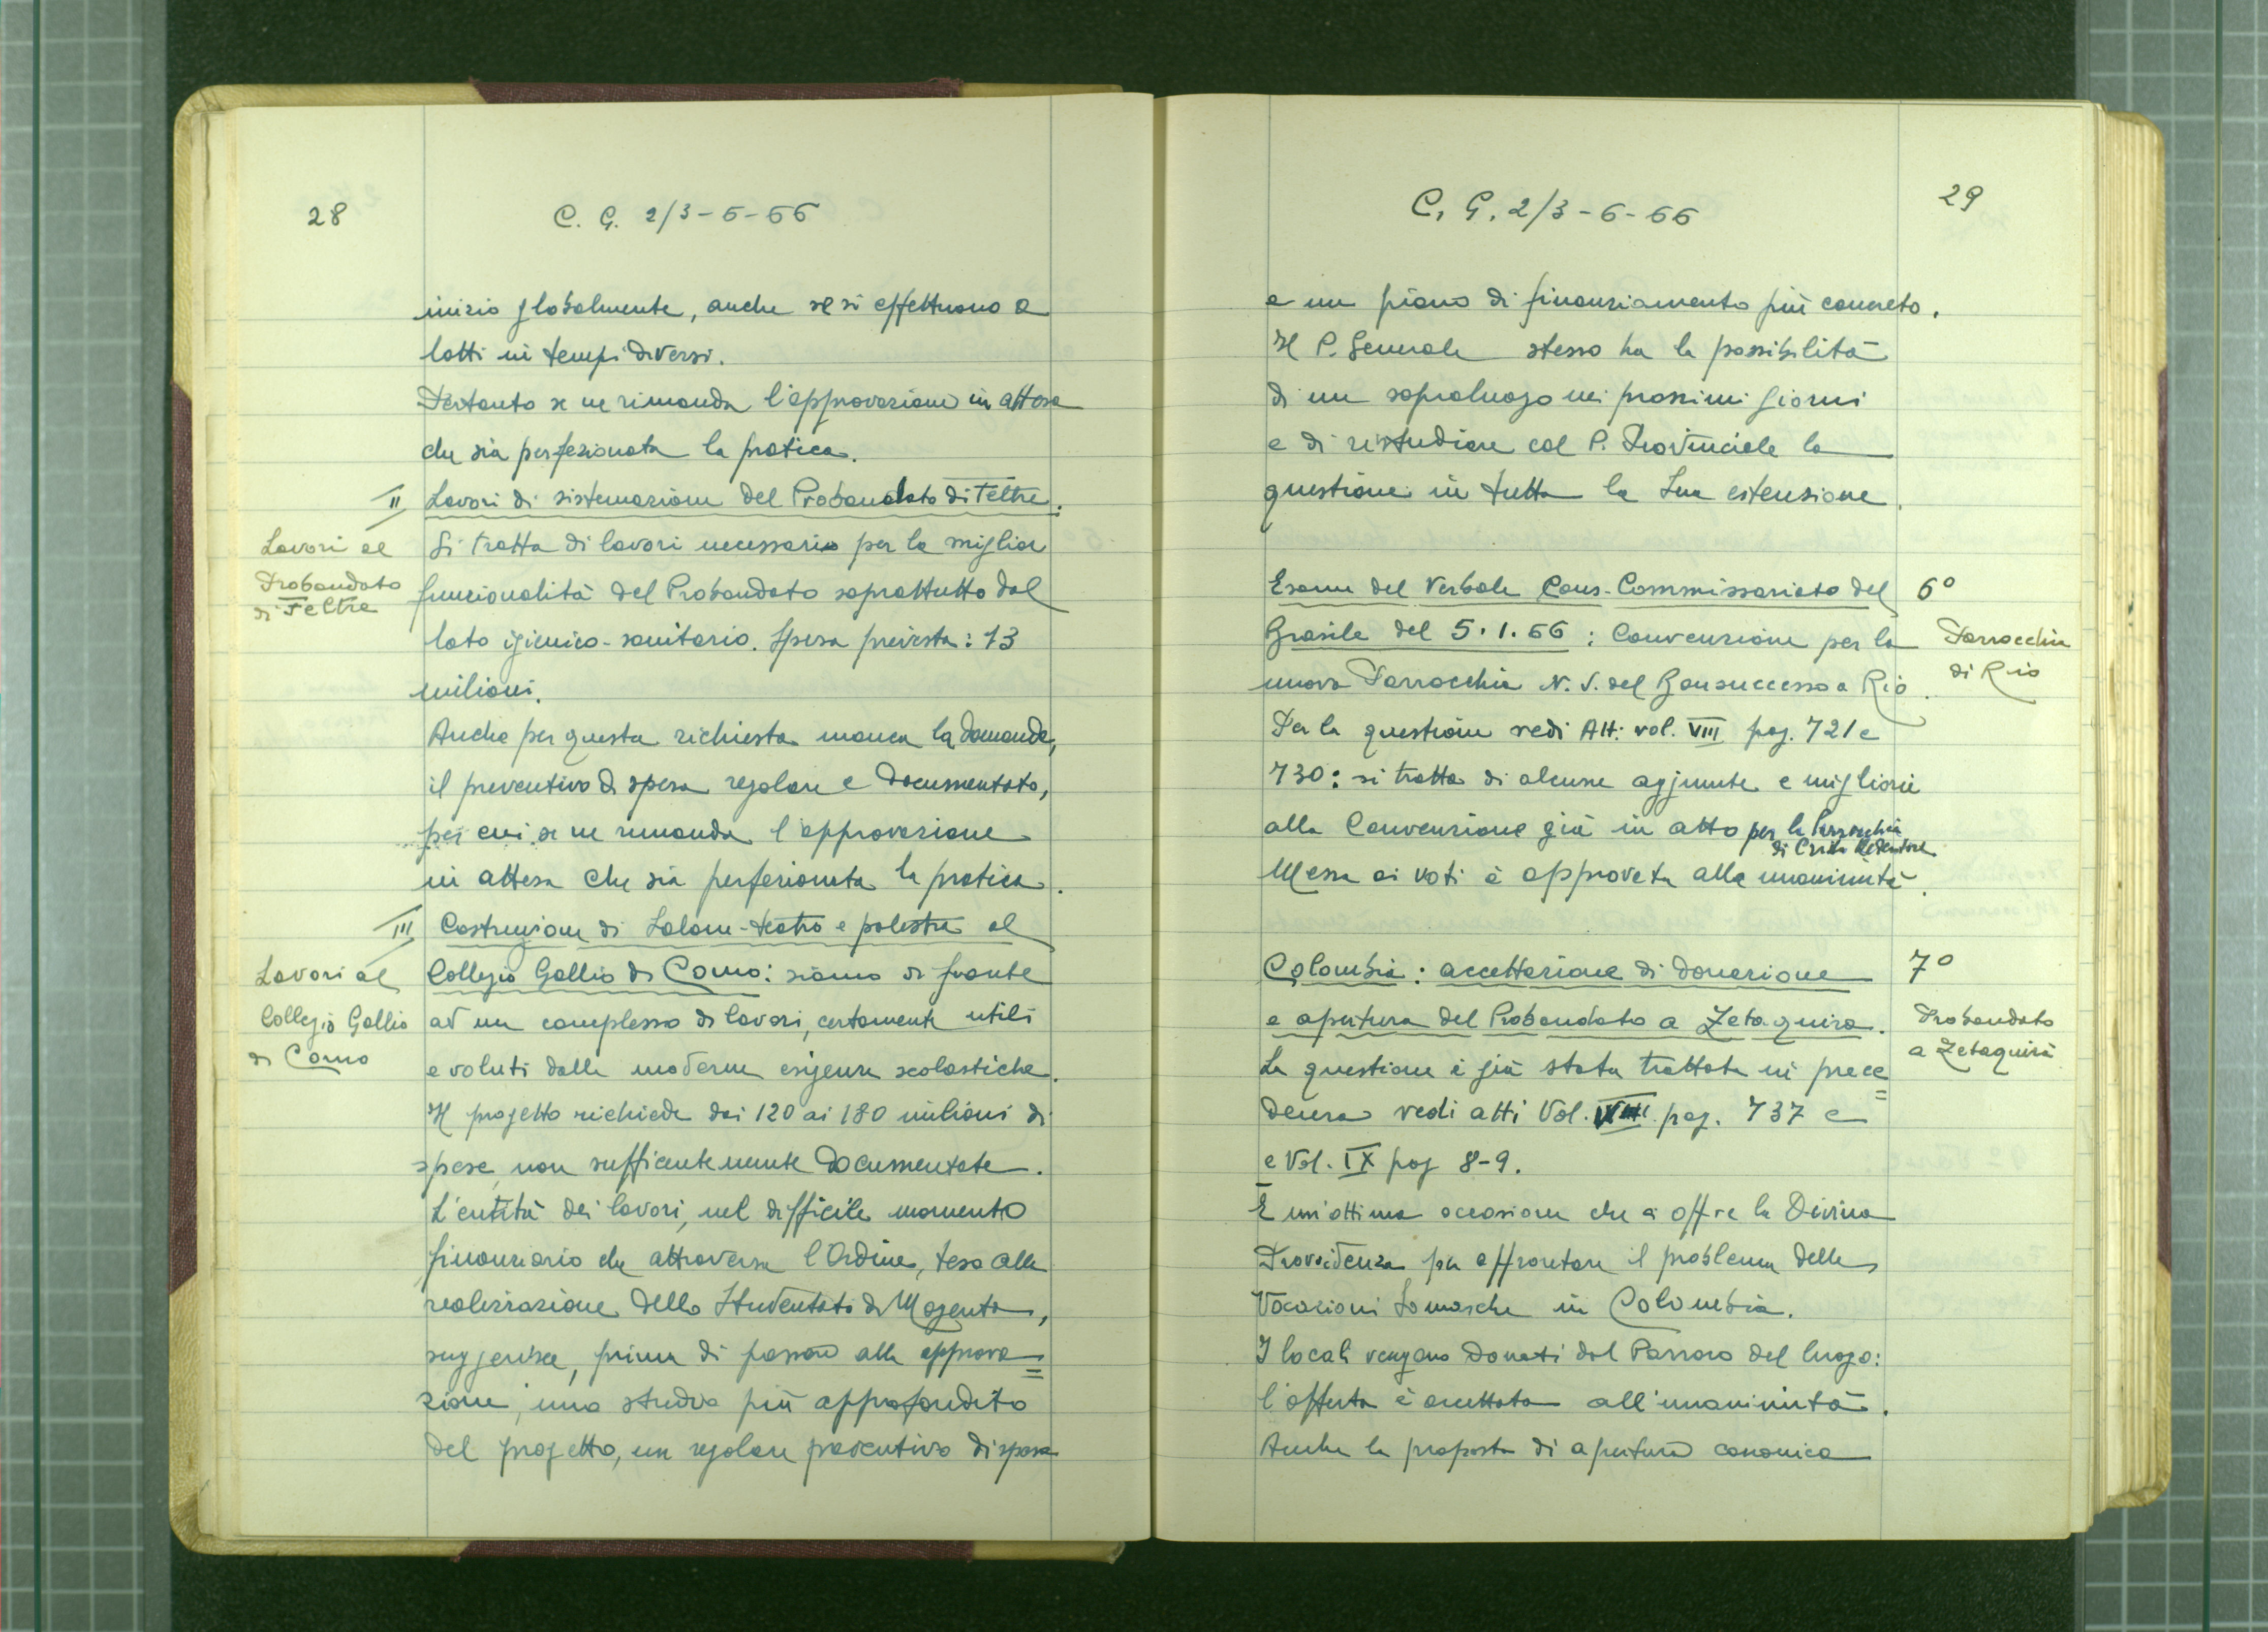 28
C. G. 2/3-6-66
inizio globalmente, anche se si effettuano a
lotti in tempi diversi.
Pertanto se ne rimanda l'approvazione in attesa
che sia perfezionata la pratica.
II Lavori di sistemazione del Probandato di Feltre.
Lavori al
Probandato
di Feltre
Si tratta di lavori necessario per la miglior
funzionalità del Probandato soprattutto dal
lato igienico-sanitario. Spesa prevista: 13
milioni.
Anche per questa richiesta manca la domanda,
il preventivo di spesa regolare e documentato,
per cui se ne rimanda l'approvazione
in attesa che sia perfezionata la pratica.
III Costruzione di Salone-teatro e palestra al
Lavori al
Collegio Gallio
di Como
Collegio Gallio di Como: siamo di fronte
ad un complesso di lavori, certamente utili
e voluti dalle moderne esigenze scolastiche.
Il progetto richiede dai 120 ai 180 milioni di
spese, non sufficientemente documentate.
L'entità dei lavori, nel difficile momento
finanziario che attraversa l'Ordine, teso alla
realizzazione dello Studentato di Magenta,
suggerisce, prima di passare alla approva=
zione, uno studio più approfondito
del progetto, un regolare preventivo di spesa
29
C. G. 2/3-6-66
e un piano di finanziamento più concreto.
Il P. Generale stesso ha la possibilità
di un sopraluogo nei prossimi giorni
e di ristudiare col P. Provinciale la
questione in tutta la sua estensione.
Esame del Verbale Cons. Commissariato del 6º
Brasile del 5.1.66: Convenzione per la
Parrocchia
di Rio
nuova Parrocchia N. S. del Bonsuccesso a Rio.
Per la questione vedi Atti vol. VIII pag. 721 e
730: si tratta di alcune aggiunte e migliorie
alla Convenzione già in atto per la Parrocchia
di Cristo Redentore
Messa ai voti è approvata alla unanimità.
Colombia: accettazione di donazione 7º
e apertura del Probandato a Zetaquira.
Probandato
a Zetaquirà
La questione è già stata trattata in prece=
denza vedi atti Vol. VIII pag. 737 e
e Vol. IX pag 8-9.
È un'ottima occasione che ci offre la Divina
Provvidenza per affrontare il problema delle
Vocazioni Somasche in Colombia.
I locali vengano donati dal Parroco del luogo:
l'offerta è accettata all'unanimità.
Anche la proposta di apertura canonica